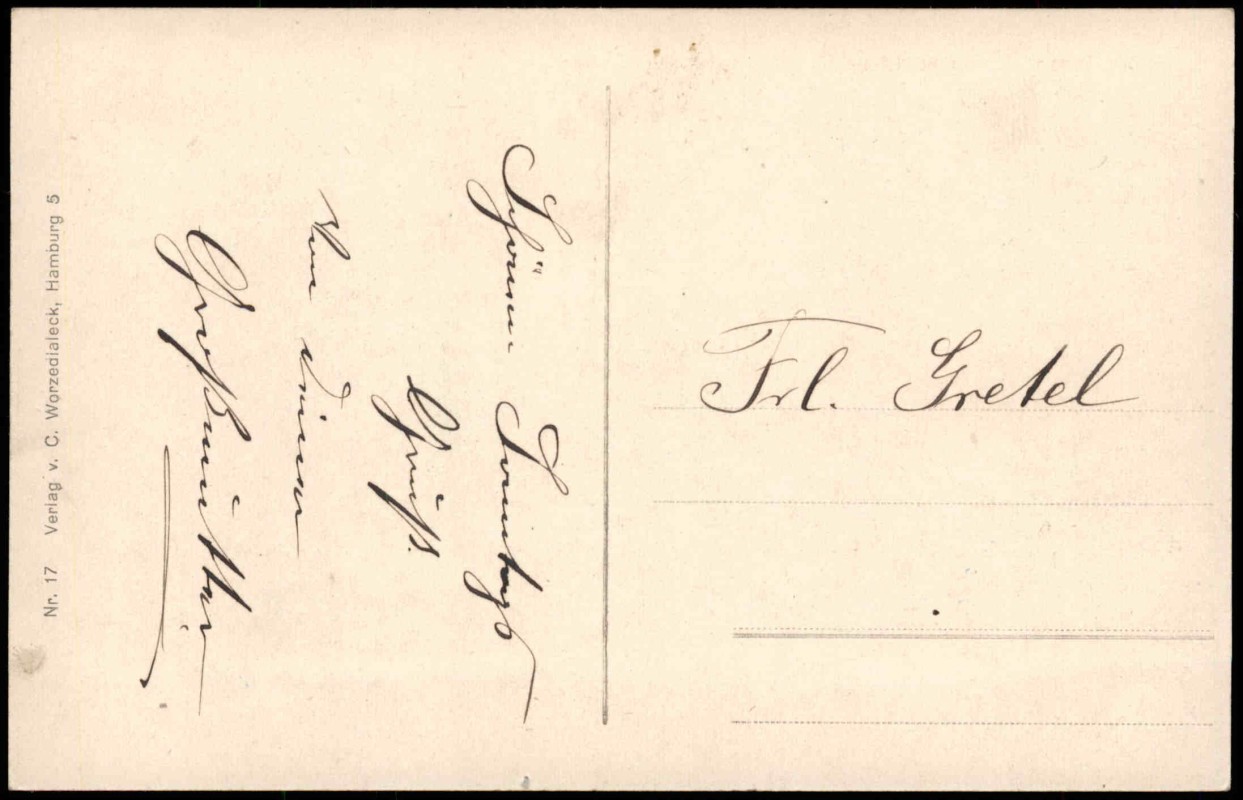 Schönen Sonntags
Gruß.
Von Deiner
Großmutter.
Frl. Gretel
Nr. 17 Verlag v. C. Worzedialeck, Hamburg 5